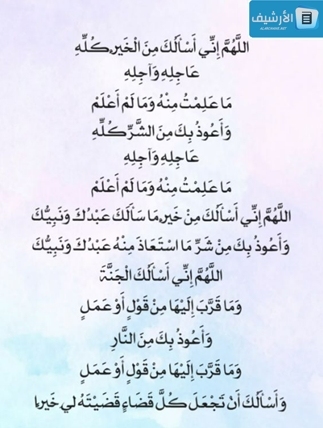 الأرشيف
ALARCHIVE.NET
اللَّهُمَّ إِنِّي أَسْأَلُكَ مِنَ الْخَيْرِ كُلِّهِ
عَاجِلِهِ وَآجِلِهِ
مَا عَلِمْتُ مِنْهُ وَمَا لَمْ أَعْلَمْ
وَأَعُوذُ بِكَ مِنَ الشَّرِّ كُلِّهِ
عَاجِلِهِ وَآجِلِهِ
مَا عَلِمْتُ مِنْهُ وَمَا لَمْ أَعْلَمْ
اللَّهُمَّ إِنِّي أَسْأَلُكَ مِنْ خَيْرِ مَا سَأَلَكَ عَبْدُكَ وَنَبِيُّكَ
وَأَعُوذُ بِكَ مِنْ شَرِّ مَا اسْتَعَاذَ مِنْهُ عَبْدُكَ وَنَبِيُّكَ
اللَّهُمَّ إِنِّي أَسْأَلُكَ الْجَنَّةَ
وَمَا قَرَّبَ إِلَيْهَا مِنْ قَوْلٍ أَوْ عَمَلٍ
وَأَعُوذُ بِكَ مِنَ النَّارِ
وَمَا قَرَّبَ إِلَيْهَا مِنْ قَوْلٍ أَوْ عَمَلٍ
وَأَسْأَلُكَ أَنْ تَجْعَلَ كُلَّ قَضَاءٍ قَضَيْتَهُ لِي خَيْرًا